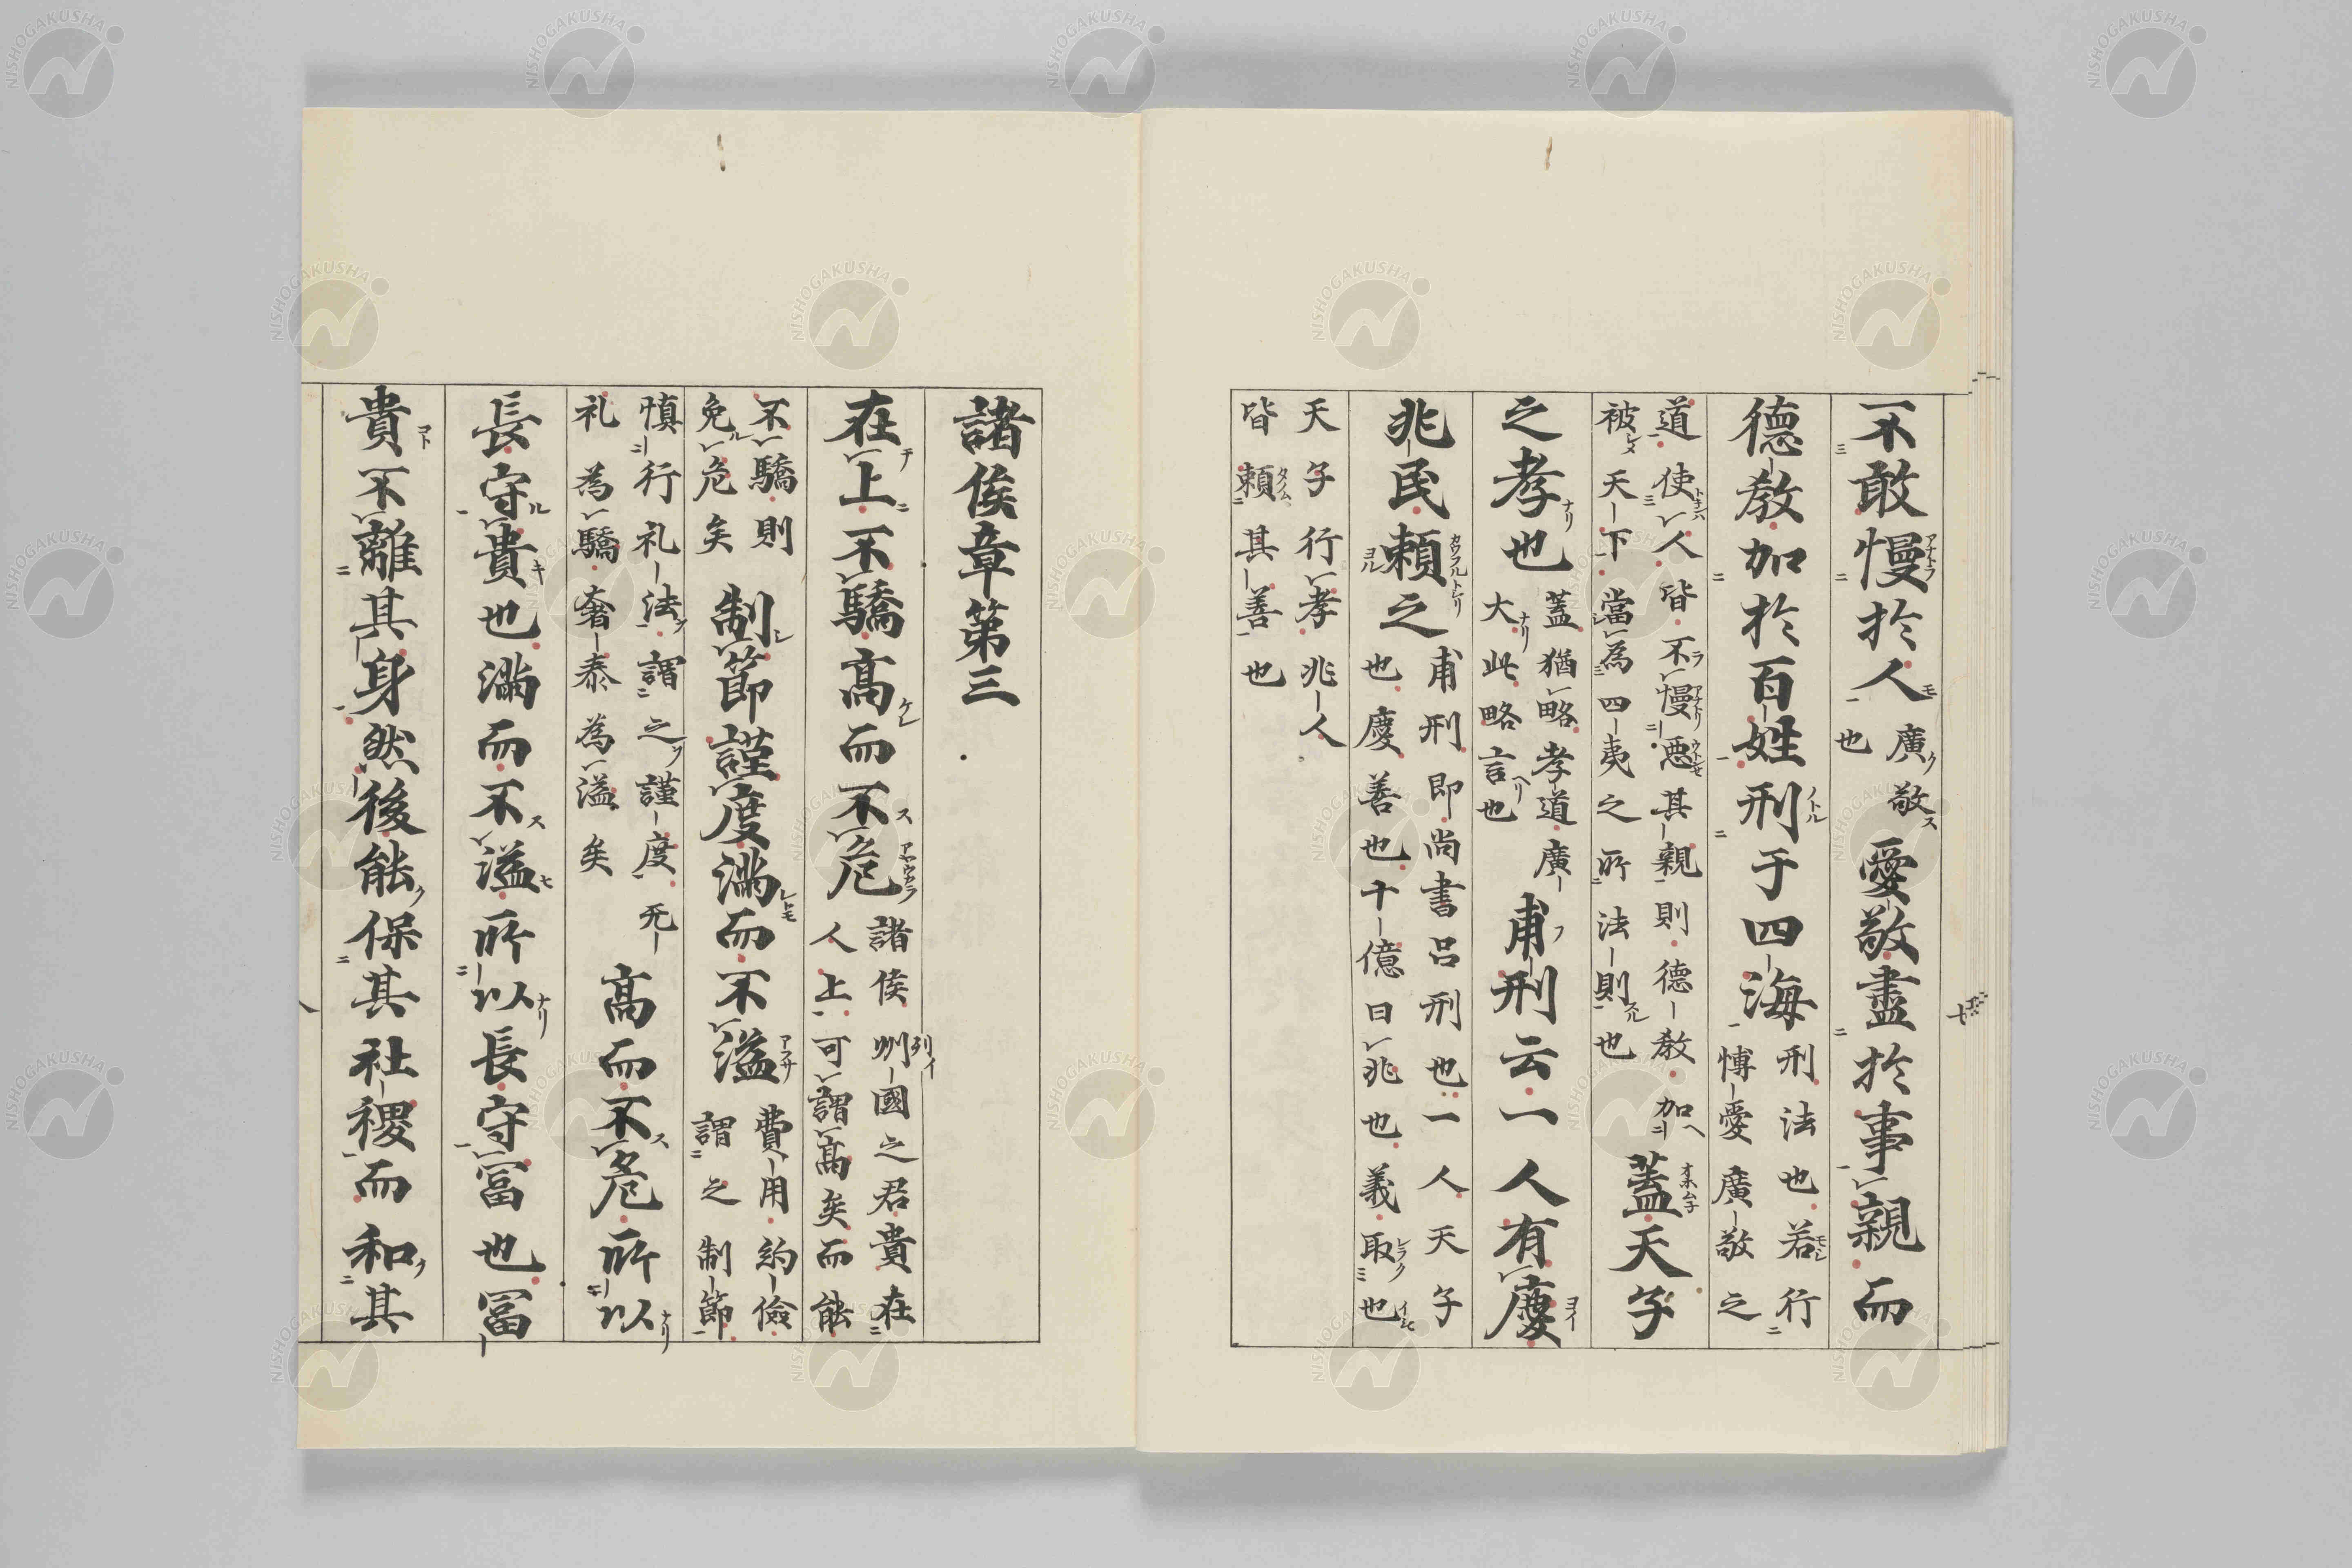 不敢慢於人廣敬也愛敬盡於事親而
德教加於百姓刑于四海刑法也若行博愛廣敬之
道使人皆不慢惡其親則德教加被天下當為四夷之所法則也蓋天子
之孝也蓋猶略孝道廣大此略言也甫刑云一人有慶
兆民頼之甫刑即尚書呂刑也一人天子也慶善也十億曰兆也義取
天子行孝兆人皆頼其善也
諸侯章第三
在上不驕高而不危諸侯列國之君貴在人上可謂高矣而能
不驕則免危矣制節謹度満而不溢費用約儉謂之制節
慎行礼法謂之謹度无礼為驕奢泰為溢矣高而不危所以
長守貴也満而不溢所以長守冨也冨
貴不離其身然後能保其社稷而和其
NISHOGAKUSHA